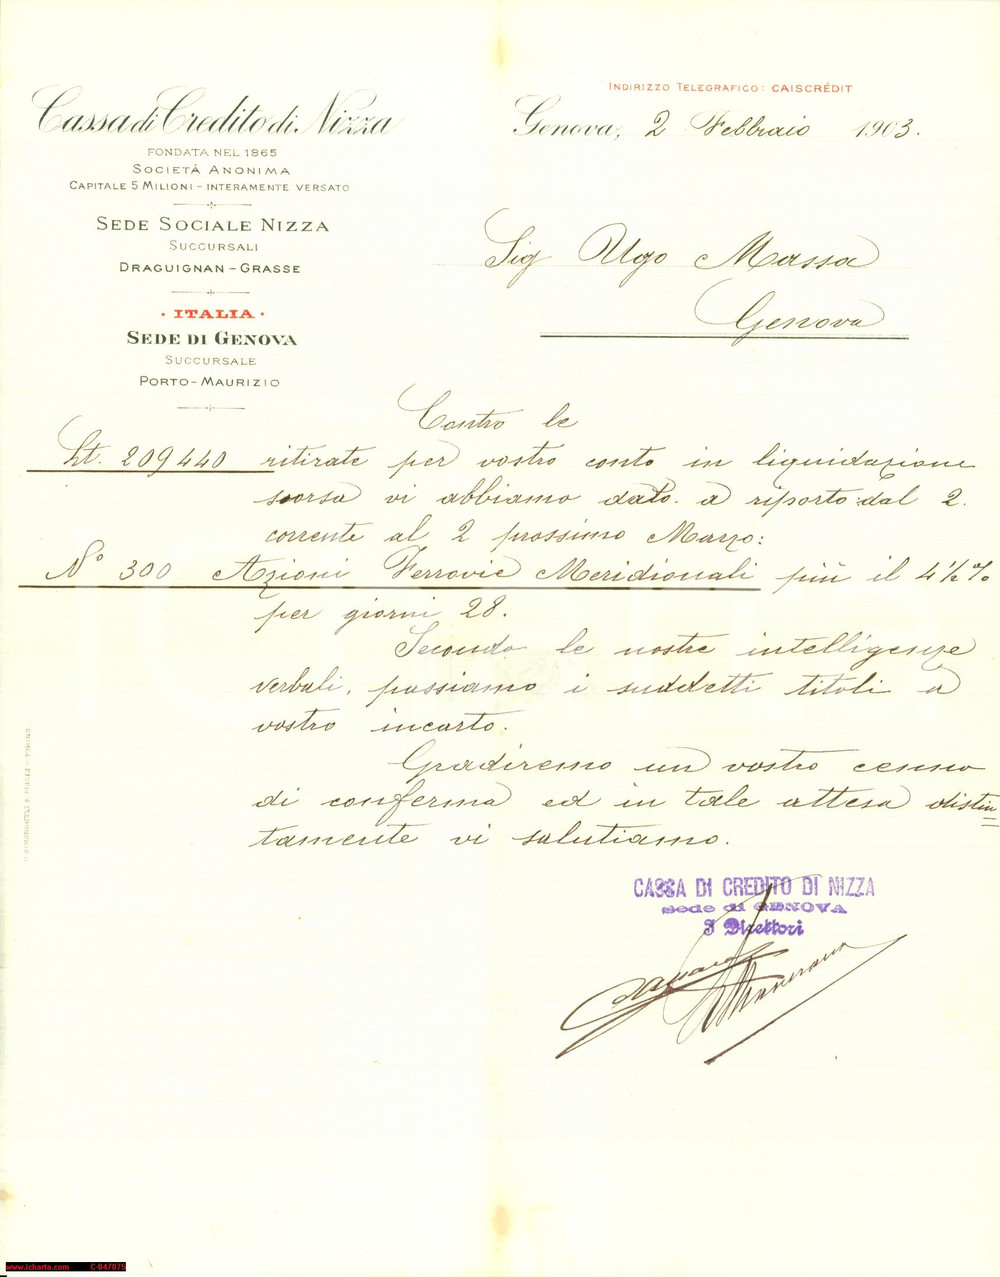 INDIRIZZO TELEGRAFICO: CAISCRÉDIT
Cassa di Credito di Nizza
FONDATA NEL 1865
SOCIETÀ ANONIMA
CAPITALE 5 MILIONI - INTERAMENTE VERSATO
SEDE SOCIALE NIZZA
SUCCURSALI
DRAGUIGNAN - GRASSE
· ITALIA ·
SEDE DI GENOVA
SUCCURSALE
PORTO-MAURIZIO
Genova, 2 Febbraio 1903.
Sig Ugo Massa
Genova
Contro le
Lt. 209440 ritirate per vostro conto in liquidazione
scorsa vi abbiamo dato a riporto dal 2.
corrente al 2 prossimo Marzo:
N° 300 Azioni Ferrovie Meridionali più il 4½%
per giorni 28.
Secondo le nostre intelligenze
verbali, passiamo i suddetti titoli a
vostro incarto.
Gradiremo un vostro cenno
di conferma ed in tale attesa distin
tamente vi salutiamo.
CASSA DI CREDITO DI NIZZA
Sede di GENOVA
I Direttori
www.icharta.com C-047075